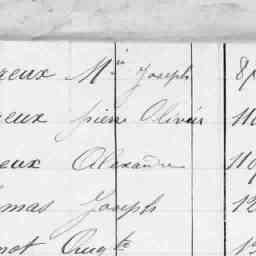 reux Mie Joseph 8
reux pierre Olivier 11
eux Alexandre 11
mas Joseph 12
not Augte 1